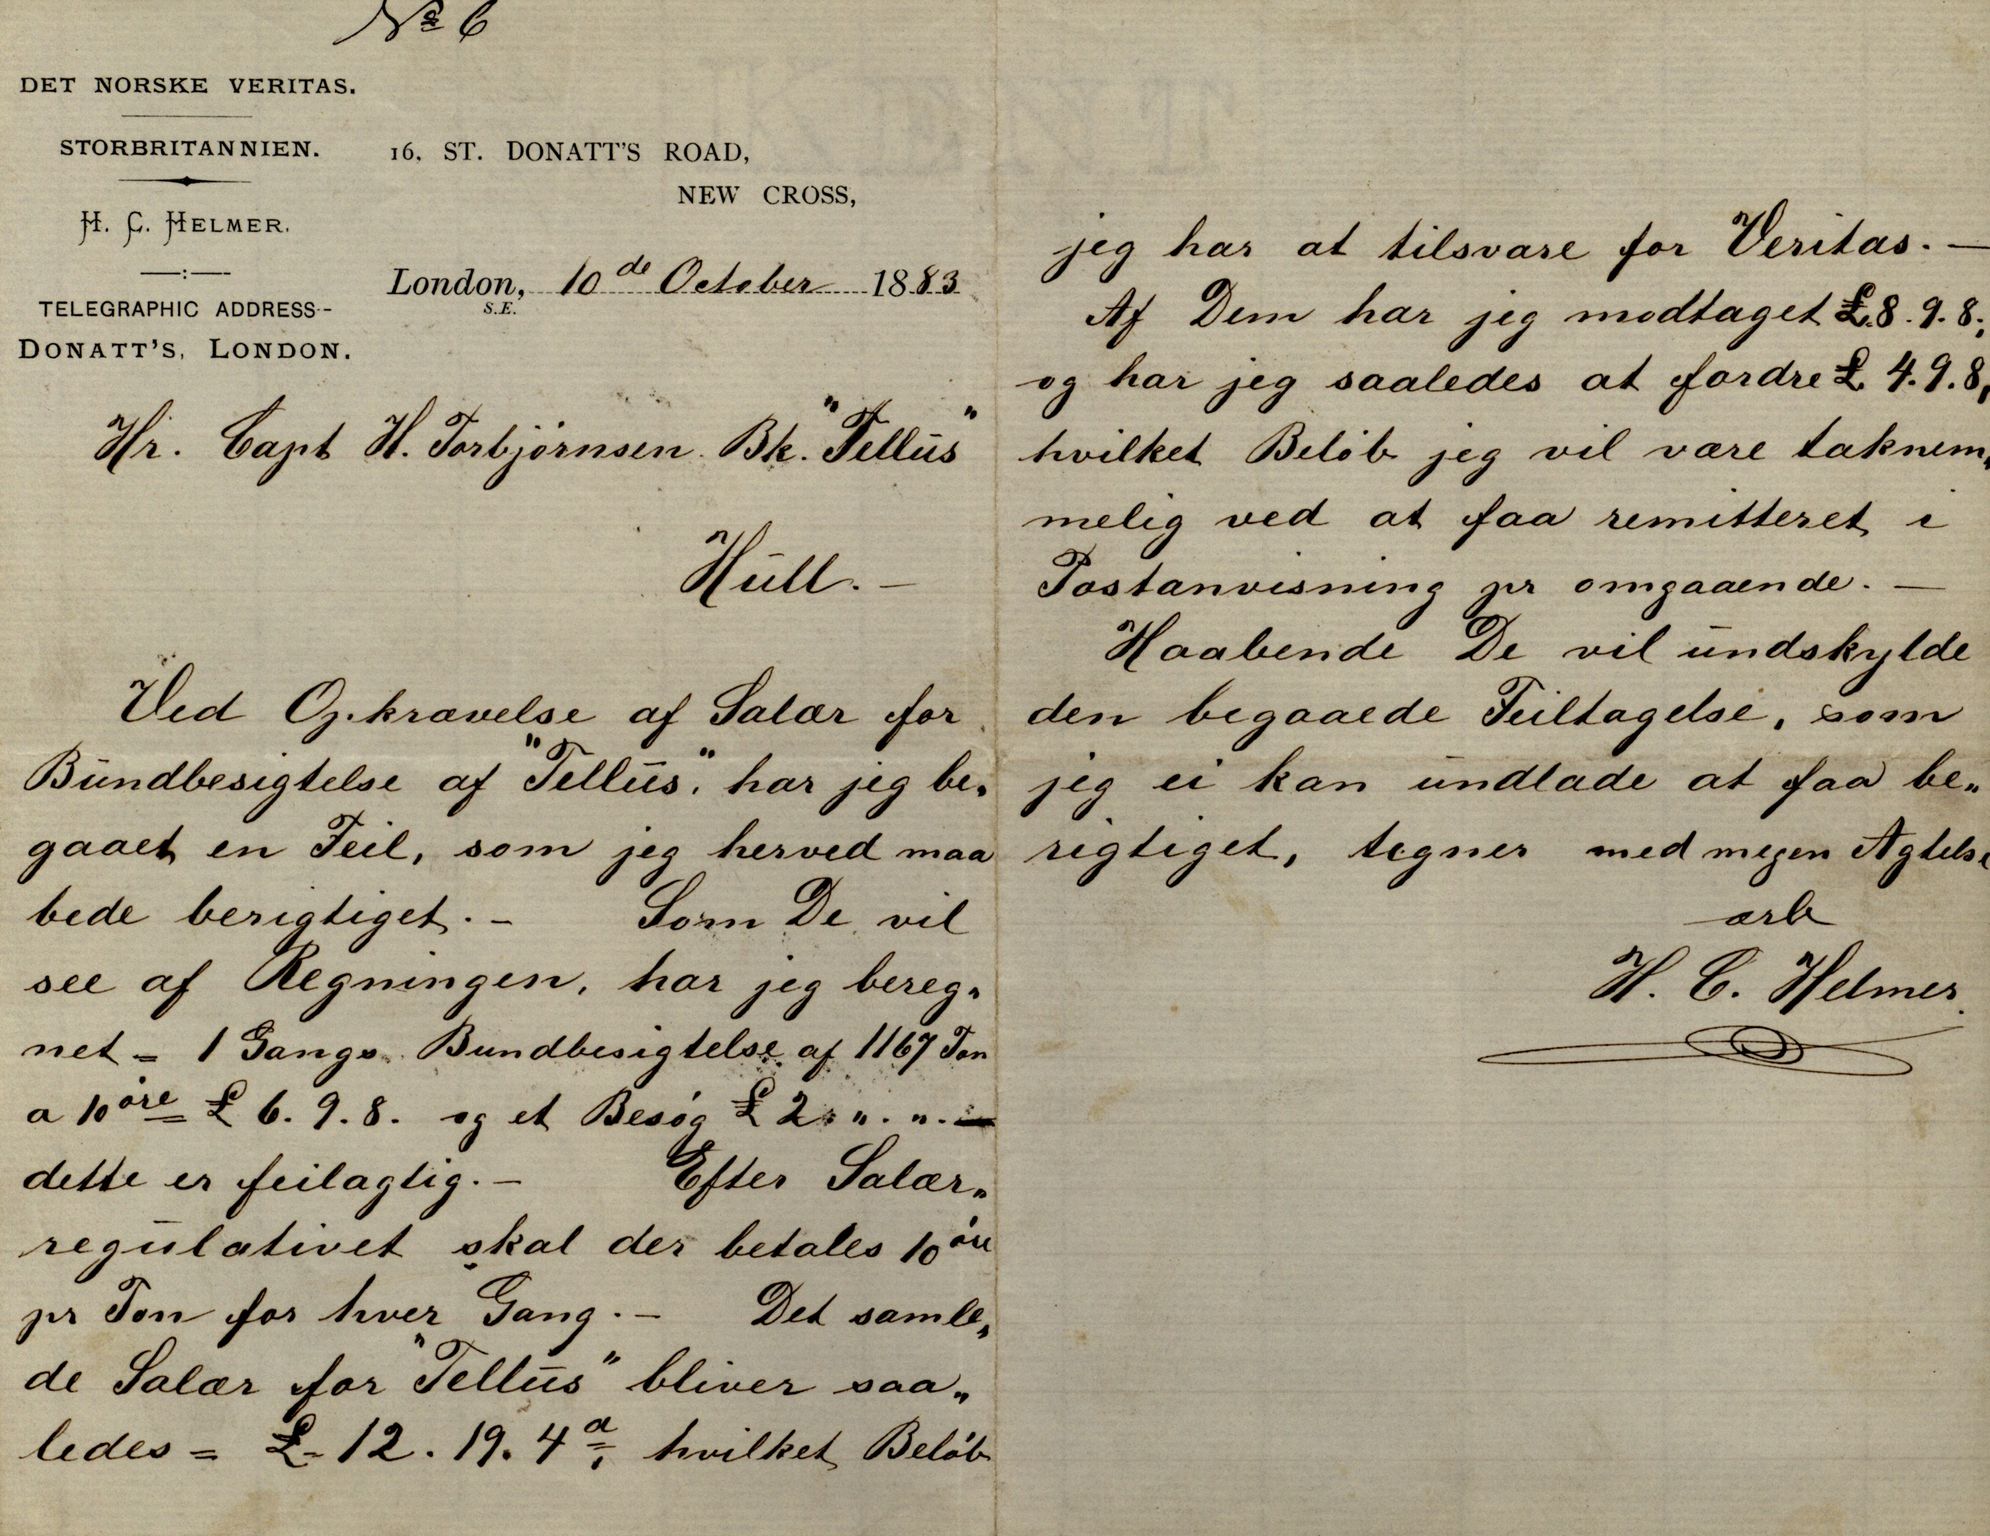 No 6
DET NORSKE VERITAS.
STORBRITANNIEN.
H. C. HELMER.
TELEGRAPHIC ADDRESS--
DONATT'S, LONDON.
16, ST. DONATT'S ROAD,
NEW CROSS,
London, 10de October 1883
S.E.
Hr. Capt H. Torbjörnsen. Bk. "Tellus"
Hull. —
Ved Opkrævelse af Salær for
Bundbesigtelse af "Tellus". har jeg be„
gaaet en Feil, som jeg herved maa
bede berigtiget. – Som De vil
see af Regningen, har jeg bereg„
net = 1 Gangs Bundbesigtelse af 1167 Ton
a 10 öre £ 6. 9. 8. og et Besøg £ 2. „. „. —
dette er feilagtig. – Efter Salær„
regulativet skal der betales 10 öre
pr Ton for hver Gang. – Det samle„
de Salær for "Tellus" bliver saa„
ledes = £ 12. 19. 4d, hvilket Belöb
jeg har at tilsvare for Veritas. —
Af Dem har jeg modtaget £ 8. 9. 8;
og har jeg saaledes at fordre £ 4. 9. 8,
hvilket Belöb jeg vil være taknem„
melig ved at faa remitteret i
Postanvisning pr omgaaende. —
Haabende De vil undskylde
den begaaede Feiltagelse, som
jeg ei kan undlade at faa be„
rigtiget, tegner med megen Agtelse
ærb
H. C. Helmer.